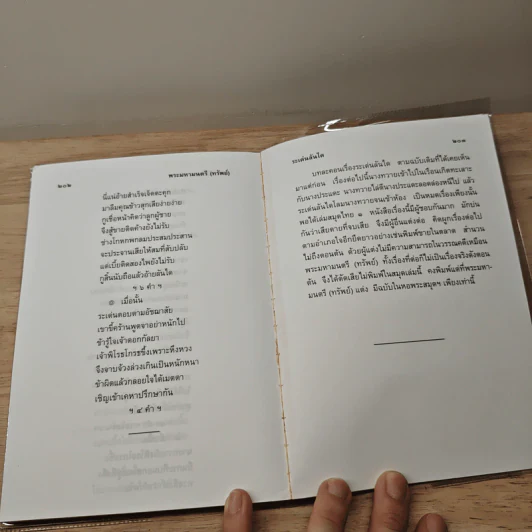 ๒๐๒ พระมหามนตรี (ทรัพย์)
นี่แน่อ้ายสำเร็จเจ็ดตะคุก
มาลืมคุณข้าวสุกเสียง่ายง่าย
กูเชื่อหน้าคิดว่าลูกผู้ชาย
จึงสู้ขายติดค้างยังไม่รับ
ช่างโกหกพกลมประสมประสาน
จะประจานเสียให้สมที่สับปลับ
แต่เบี้ยติดสองไพยังไม่รับ
กูสิ้นนับถือแล้วอ้ายลันได
ฯ ๖ คำ ฯ
๏ เมื่อนั้น
ระเด่นตอบตามอัชฌาสัย
เขาขี้คร้านพูดจาอย่าหนักไป
ข้ารู้ใจเจ้าดอกกัลยา
เจ้าพิโรธโกรธขึ้งเพราะหึงหวง
จึงจาบจ้วงล่วงเกินเป็นหนักหนา
ข้าผิดแล้วกลอยใจได้เมตตา
เชิญเข้าเคหาปรึกษากัน
ฯ ๘ คำ ฯ
ระเด่นลันได ๒๐๓
บทละคอนเรื่องระเด่นลันได ตามฉบับเดิมที่ได้เคยเห็น
มาแต่ก่อน เรื่องต่อไปนี้นางทวายเข้าไปในเรือนเกิดทะเลาะ
กับนางประแดะ นางทวายไล่ตีนางประแดะลอดล่องหนีไป แล้ว
ระเด่นลันไดโลมนางทวายจนเข้าห้อง เป็นหมดเรื่องเพียงนั้น
พอได้เต็มสมุดไทย ๑ หนังสือเรื่องนี้มีผู้ชอบกันมาก มักบ่น
กันว่าเสียดายที่จบเสีย จึงมีผู้อื่นแต่งต่อ คิดผูกเรื่องต่อไป
ตามอำเภอใจอีกยืดยาวอย่างเช่นพิมพ์ขายในตลาด สำนวน
ไม่ถึงตอนต้น ด้วยผู้แต่งไม่มีความสามารถในวรรณคดีเหมือน
พระมหามนตรี (ทรัพย์) ทั้งเรื่องที่ต่อก็ไม่เป็นเรื่องจริงดังตอน
ต้น จึงได้คิดเสียไม่พิมพ์ในสมุดเล่มนี้ คงพิมพ์แต่ที่พระมหา-
มนตรี (ทรัพย์) แต่ง มีฉบับในหอพระสมุดฯ เพียงเท่านี้